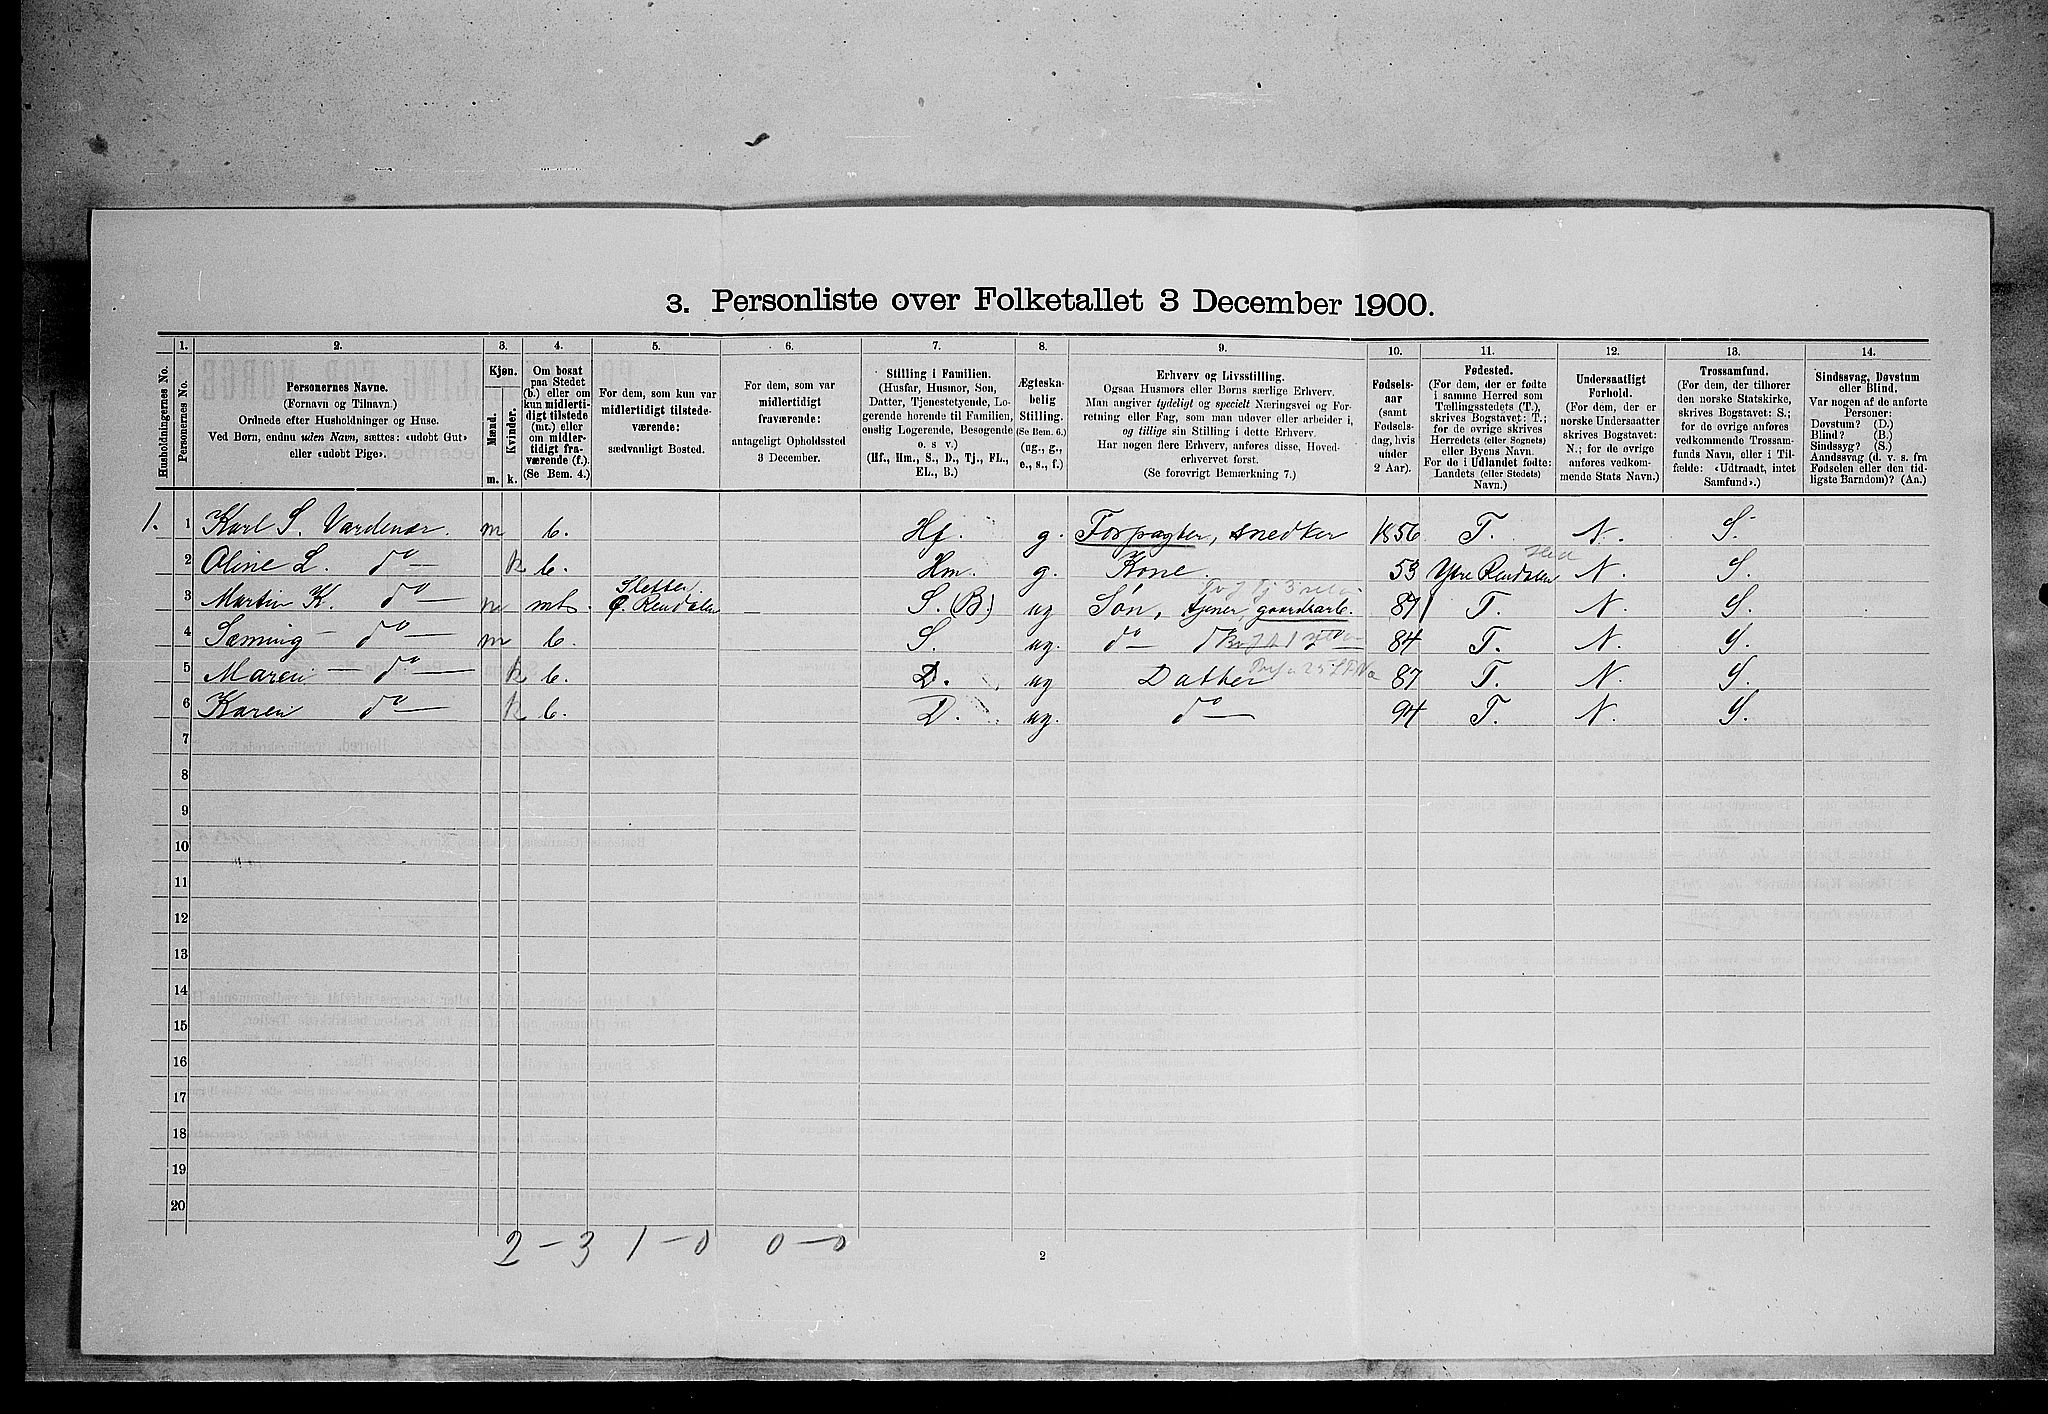 3. Personliste over Folketallet 3 December 1900.
Husholdningernes No.
1.
Personernes No.
2.
Personernes Navne.
(Fornavn og Tilnavn.)
Ordnede efter Husholdninger og Huse.
Ved Børn, endnu uden Navn, sættes: «udøbt Gut»
eller «udøbt Pige».
3.
Kjøn.
Mænd.
Kvinder.
m. k.
4.
Om bosat
paa Stedet
(b.) eller om
kun midlerti-
digt tilstede
(mt.) eller
om midler-
tidigt fra-
værende (f.).
(Se Bem. 4.)
5.
For dem, som kun var
midlertidigt tilstede-
værende:
sædvanligt Bosted.
6.
For dem, som var
midlertidigt
fraværende:
antageligt Opholdssted
3 December.
7.
Stilling i Familien.
(Husfar, Husmor, Søn,
Datter, Tjenestetyende, Lo-
gerende hørende til Familien,
enslig Logerende, Besøgende
o. s. v.)
(Hf., Hm., S., D., Tj., FL.,
EL., B.)
8.
Ægteska-
belig
Stilling.
(Se Bem. 6.)
(ug., g.,
e., s., f.)
9.
Erhverv og Livsstilling.
Ogsaa Husmors eller Børns særlige Erhverv.
Man angiver tydeligt og specielt Næringsvei og For-
retning eller Fag, som man udøver eller arbeider i,
og tillige sin Stilling i dette Erhverv.
Har nogen flere Erhverv, anføres disse, Hoved-
erhvervet først.
(Se forøvrigt Bemærkning 7.)
10.
Fødsels-
aar
(samt
Fødsels-
dag, hvis
under
2 Aar).
11.
Fødested.
(For dem, der er fødte
i samme Herred som
Tællingsstedets (T.),
skrives Bogstavet: T.;
for de øvrige skrives
Herredets (eller Sognets)
eller Byens Navn.
For de i Udlandet fødte:
Landets (eller Stedets)
Navn.)
12.
Undersaatligt
Forhold.
(For dem, der er
norske Undersaatter
skrives Bogstavet:
N.; for de øvrige
anføres vedkom-
mende Stats Navn.)
13.
Trossamfund.
(For dem, der tilhører
den norske Statskirke,
skrives Bogstavet: S.;
for de øvrige anføres
vedkommende Trossam-
funds Navn, eller i Til-
fælde: «Udtraadt, intet
Samfund».)
14.
Sindssvag, Døvstum
eller Blind.
Var nogen af de anførte
Personer:
Døvstum? (D.)
Blind? (B.)
Sindssyg? (S.)
Aandssvag (d. v. s. fra
Fødselen eller den tid-
ligste Barndom)? (Aa.)
1. 1 Karl S. Vardenær. m b. Hf. g. Forpagter, snedker 1856 T. N. S.
2 Oline L. do k b. Hm. g. Kone. 53 Ytre Rendalen N. S.
3 Martin K. do m mt. Sletten Ø. Rendalen S. (B.) ug Søn, tjener, gaardsarb. 81 T. N. S.
4 Sæming do m b. S. ug. do do 84 T. N. S.
5 Maren do k b. D. ug Datter 87 T. N. S.
6 Karen do k b. D. ug. do 94 T. N. S.
7
8
9
10
11
12
13
14
15
16
17
18
19
20
2 - 3 1 - 0 0 - 0
2